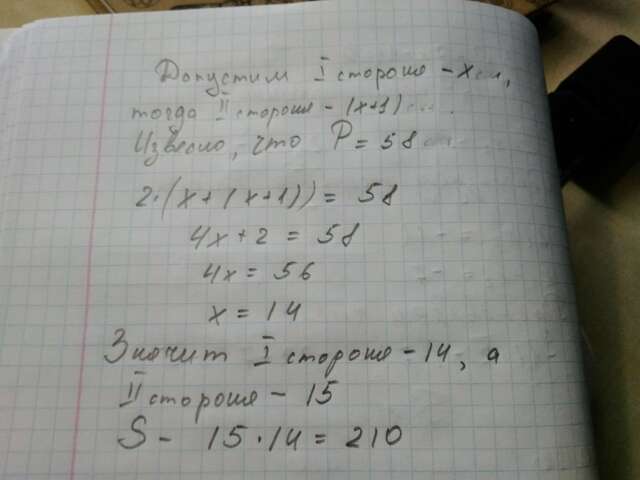 Допустим I стороне - x см,
тогда II стороне - (x+1) см.
Извесно, что P = 58 см
2·(x+(x+1)) = 58
4x+2 = 58
4x = 56
x = 14
Значит I стороне - 14, а
II стороне - 15
S - 15·14 = 210